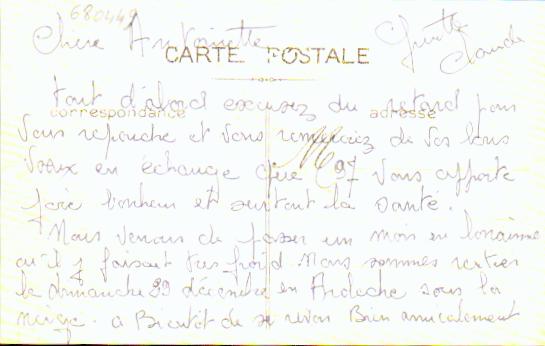 680449
Chère Antoinette
Ginette
Claude
CARTE POSTALE
correspondance
adresse
tout d'abord excusez du retard pour
vous repondre et vous remerciez de vos bons
voeux en échange que 97 vous apporte
joie bonheur et surtout la santé.
Nous venons de passer un mois en lorraine
qu'il y faisait très froid. Nous sommes rentrés
le dimanche 29 décembre en Ardèche sous la
neige. à Bientôt de se revoir Bien amicalement